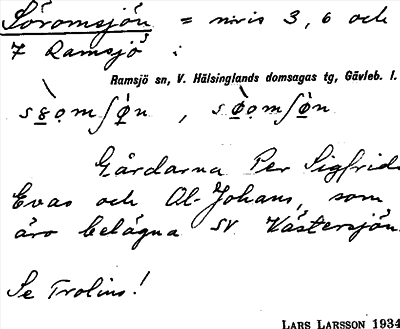 Söromsjön = nris 3, 6 och
7 Ramsjö i
Ramsjö sn, V. Hälsinglands domsagas tg, Gävleb. l.
Gårdarna Per Sigfrids
Evas och Ol-Johans, som
äro belägna SV Västersjön.
Se Trolins!
LARS LARSSON 1934